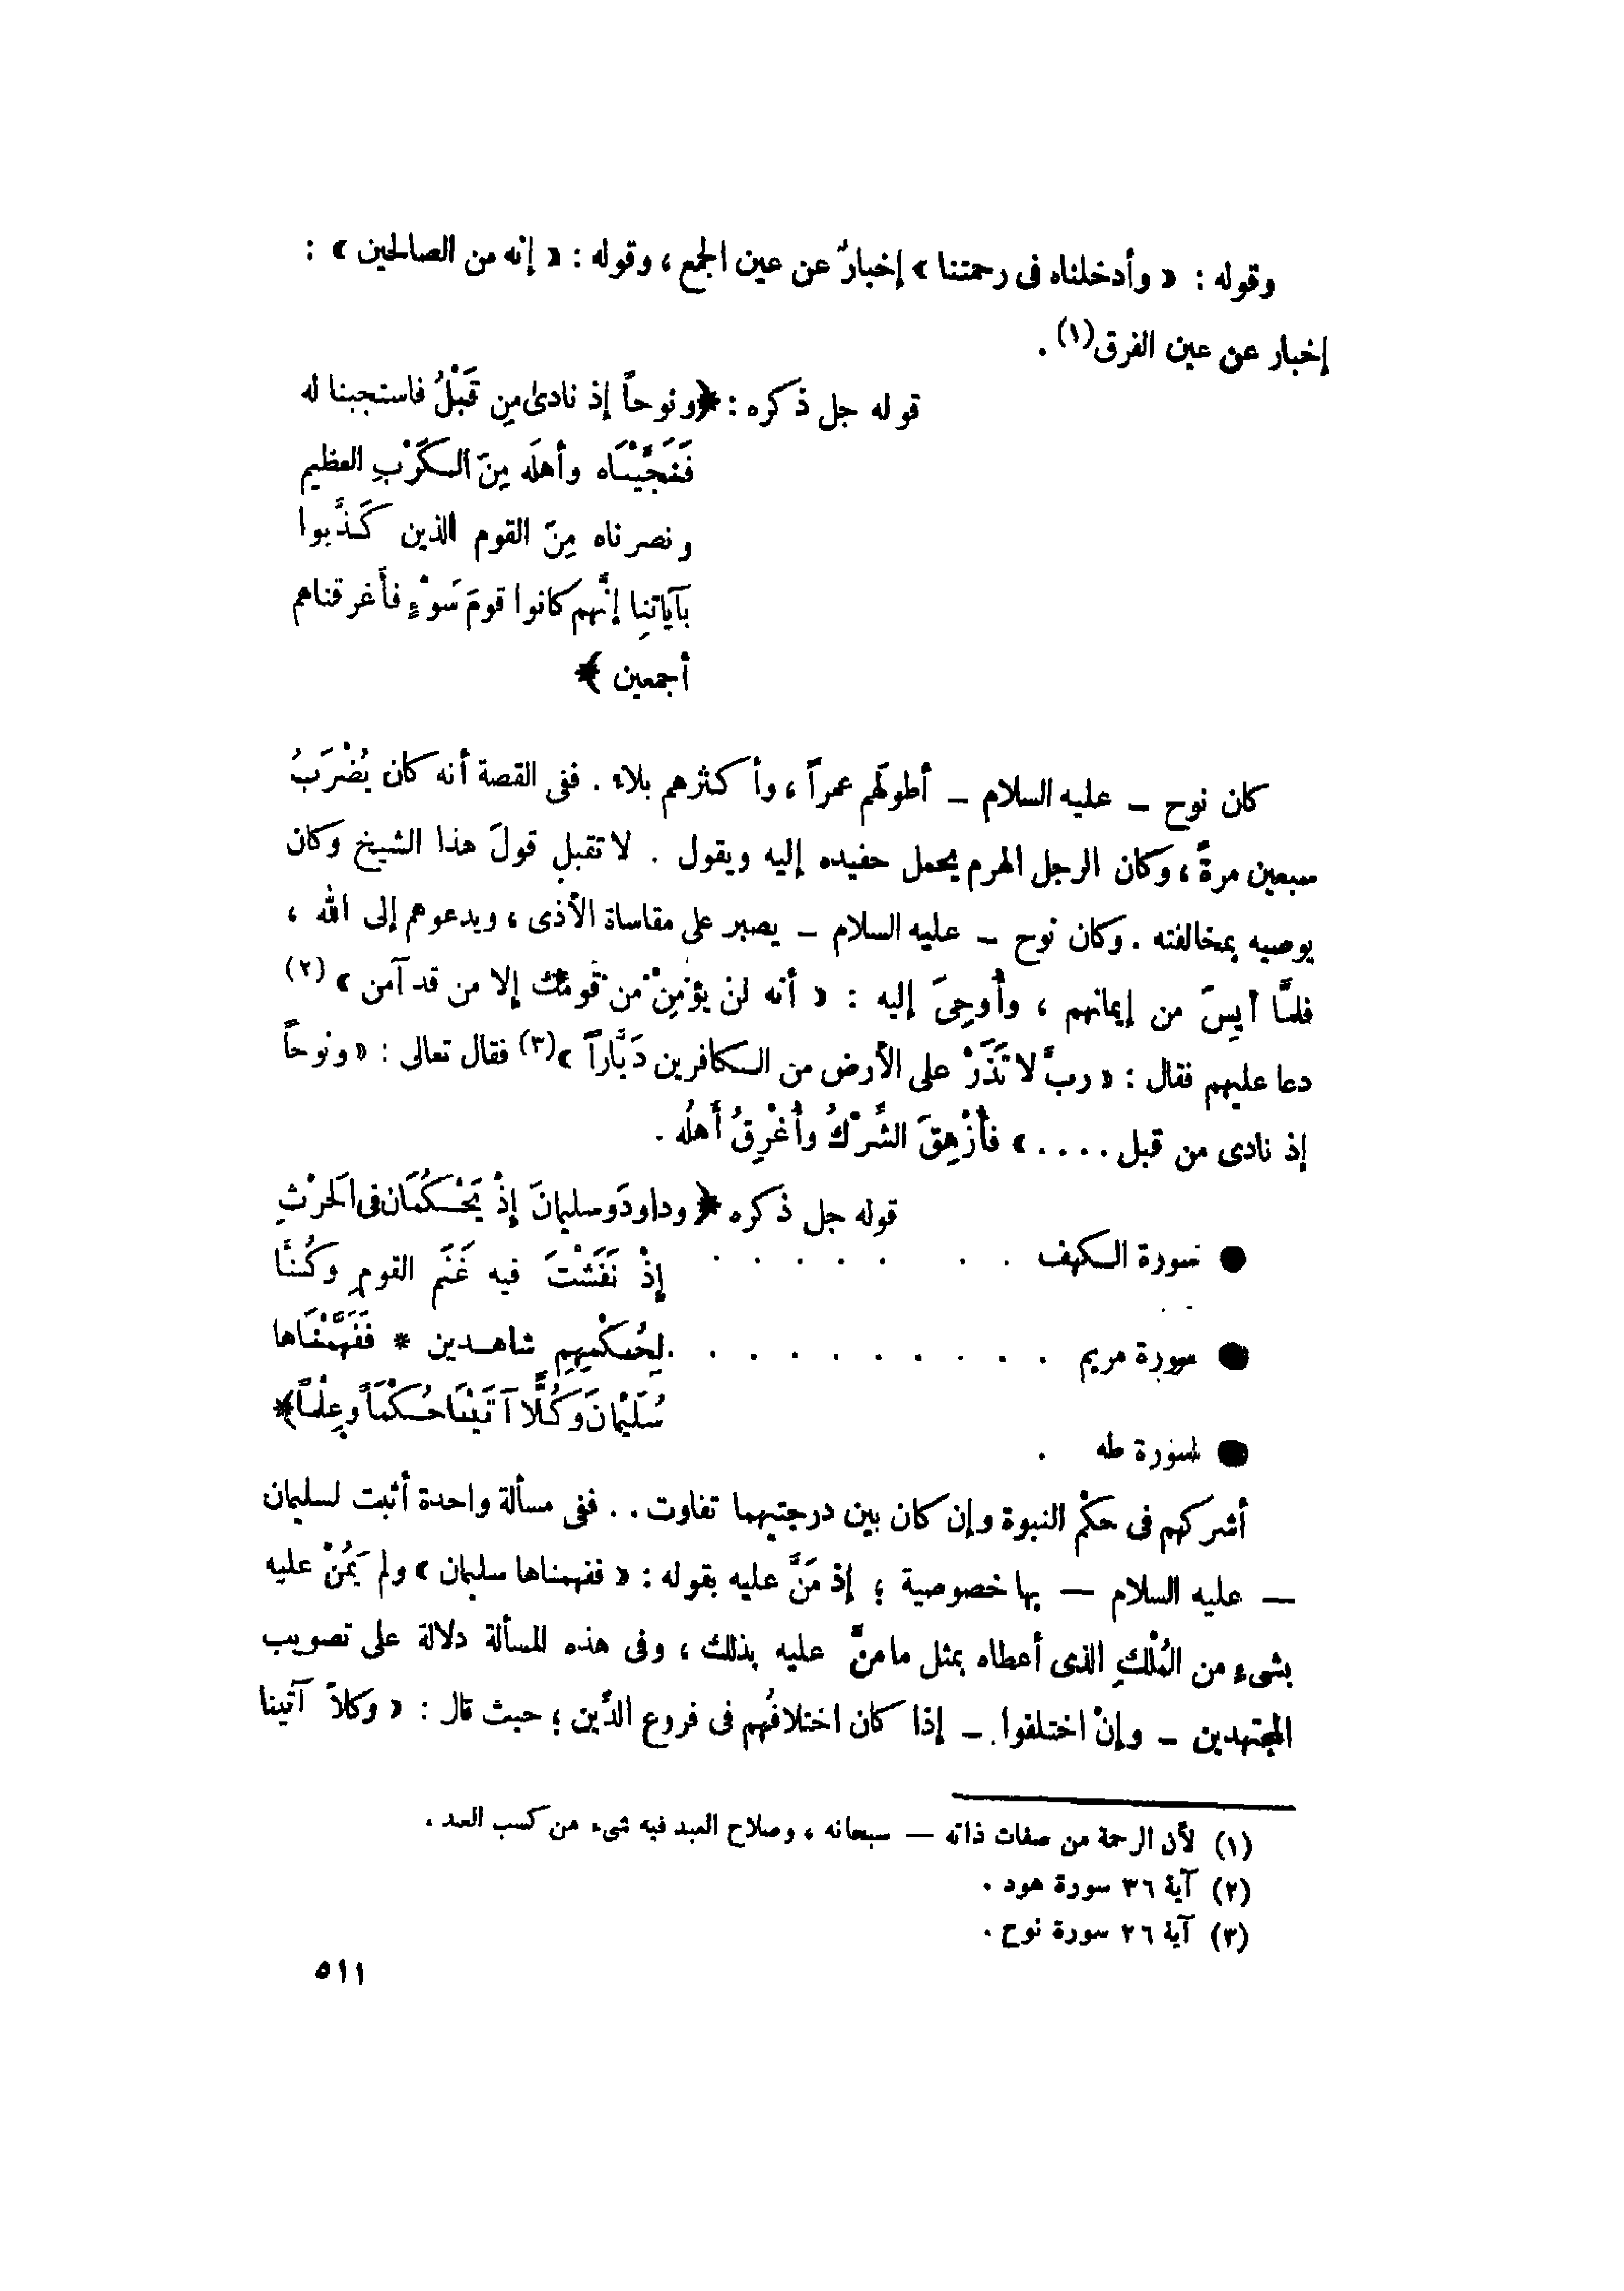 وقوله : « وأدخلناه فى رحمتنا » إخبارٌ عن عين الجمع ، وقوله : « إنه من الصالحين » :
إخبار عن عين الفرق(١) .
قوله جل ذكره : ﴿ ونوحاً إذ نادىٰ مِن قَبْلُ فاستجبنا له
فَنَجَّيْنَاه وأهلَه مِنَ الكَرْبِ العظيم
ونصرناه مِنَ القوم الذين كَذَّبوا
بآياتنِا إنَّهم كانوا قومَ سَوْءٍ فأَغرقناهم
أجمعين ﴾
كان نوح – عليه السلام – أطولَهم عمراً ، وأكثرهم بلاء . ففى القصة أنه كان يُضْرَبُ
سبعين مرةً ، وكان الرجل الهرم يحمل حفيده إليه ويقول . لا تقبل قولَ هذا الشيخ وكان
يوصيه بمخالفته . وكان نوح – عليه السلام – يصبر على مقاساة الأذى ، ويدعوهم إلى الله ،
فلمَّا أيِسَ من إيمانهم ، وأُوحِىَ إليه : « أنه لن يؤمِنْ من قومك إلا من قد آمن » (٢)
دعا عليهم فقال : « ربِّ لا تَذَرْ على الأرض من الكافرين دَيَّاراً »(٣) فقال تعالى : « ونوحاً
إذ نادى من قبل .... » فأَزْهِقَ الشِّرْكُ وأُغْرِقُ أَهلُه .
قوله جل ذكره ﴿ وداودَ وسليمانَ إذْ يَحْكُمَان فى الحَرْثِ
● سورة الكهف . . . . . . .
إذْ نَفَشَتْ فيه غَنَمُ القومِ وكُنَّا
● سورة مريم . . . . . . . . . .
لِحُكْمِهِم شاهدين * فَفَهَّمْنَاها
سُلَيْمانَ وَكُلًّا آتَيْنَا حُكْمَاً وعِلْماً ﴾
● سورة طه .
أشركهم فى حكْم النبوة وإن كان بين درجتيهما تفاوت . . ففى مسألة واحدة أثبت لسليمان
— عليه السلام — بها خصوصية ؛ إذ مَنَّ عليه بقوله : « ففهمناها سليمان » ولم يَمُنْ عليه
بشىء من المُلْكِ الذى أعطاه بمثل ما منَّ عليه بذلك ، وفى هذه المسألة دلالة على تصويب
المجتهدين – وإنْ اختلفوا – إذا كان اختلافُهم فى فروع الدِّين ؛ حيث قال : « وكلاً آتينا
(١) لأن الرحمة من صفات ذاته — سبحانه ، وصلاح العبد فيه شىء من كسب العبد .
(٢) آية ٣٦ سورة هود .
(٣) آية ٢٦ سورة نوح .
٥١١